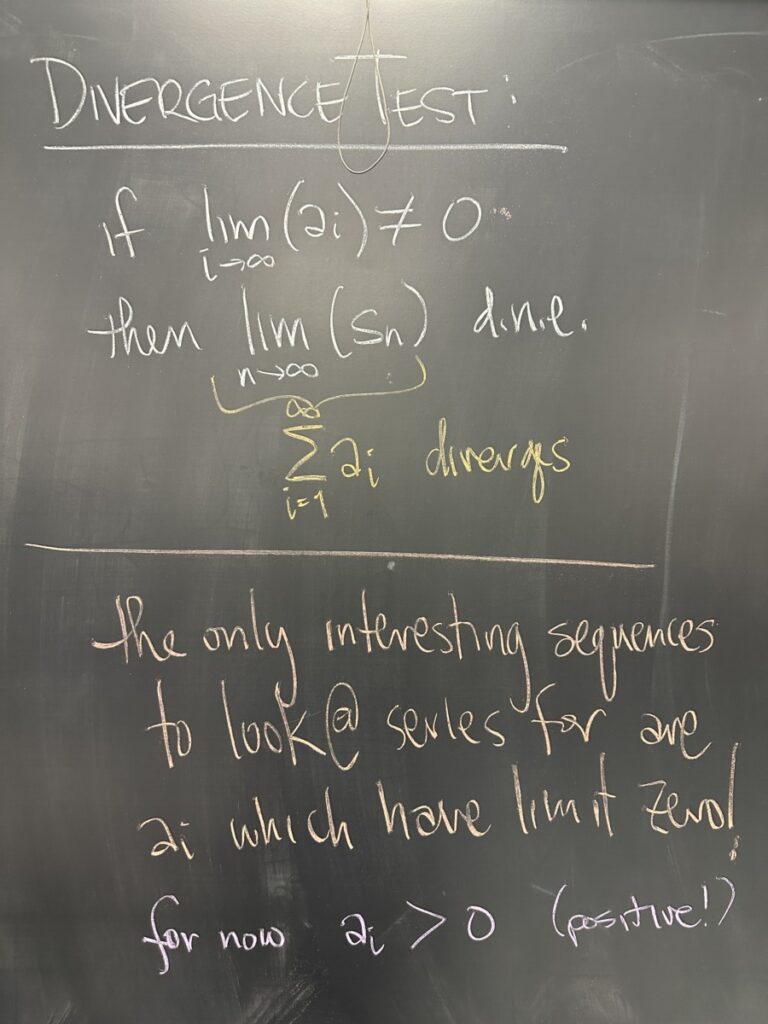 DIVERGENCE TEST:
if lim (ai) ≠ 0
i→∞
then lim (sn) d.n.e.
n→∞
∞
Σ ai diverges
i=1
the only interesting sequences
to look @ series for are
ai which have limit zero!
for now ai > 0 (positive!)